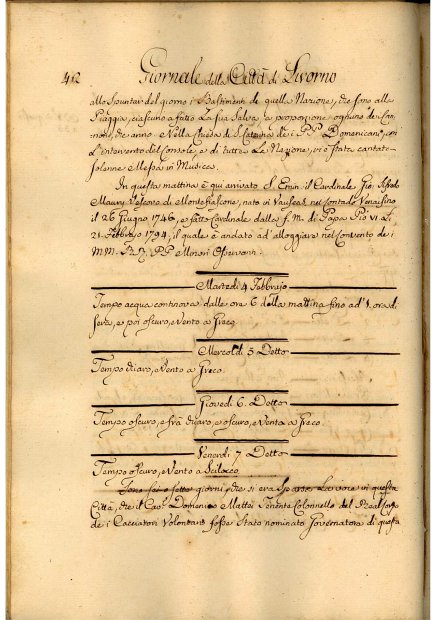 412 Giornale della Città di Livorno
allo spuntar del giorno i Bastimenti di quella Nazione, che sono alla
Spiaggia, ciascuno à fatto la sua Salva, a proporzione ognuno dei Can-
noni, che anno. Nella Chiesa di S. Caterina de i PP. Domenicani, con
L'intervento del Console, e di tutta La Nazione, vi è stata cantata
solenne Messa in Musica.
In questa mattina è qui arrivato S. Emin. il Cardinale Gio:
Maury Vescovo di Montefiascone, nato in Vaureas nel Contado Venassino
il 26 Giugno 1746, e fatto Cardinale dalla f. M. di Papa Pio VI. Li
21. Febbrajo 1794, il quale è andato ad alloggiare nel Convento de i
M.M. R.R. P.P. Minori Osservanti.
Martedì 4 Febbrajo
Tempo acqua continova dalle ore 6 della mattina fino ad 1. ora di
sera, e poi oscuro, e Vento a Greco.
Mercoldì 5 Detto
Tempo chiaro, e Vento a Greco.
Giovedì 6. Detto
Tempo oscuro, e frà chiaro, e oscuro, e Vento a Greco.
Venerdì 7. Detto
Tempo oscuro, e Vento a Scilocco.
Sono sei o sette giorni, che si era sparsa La voce in questa
Città, che il Cav. Domenico Mattei Tenente Colonnello del Real Corpo
de i Cacciatori Volontarj fosse Stato nominato Governatore di questa